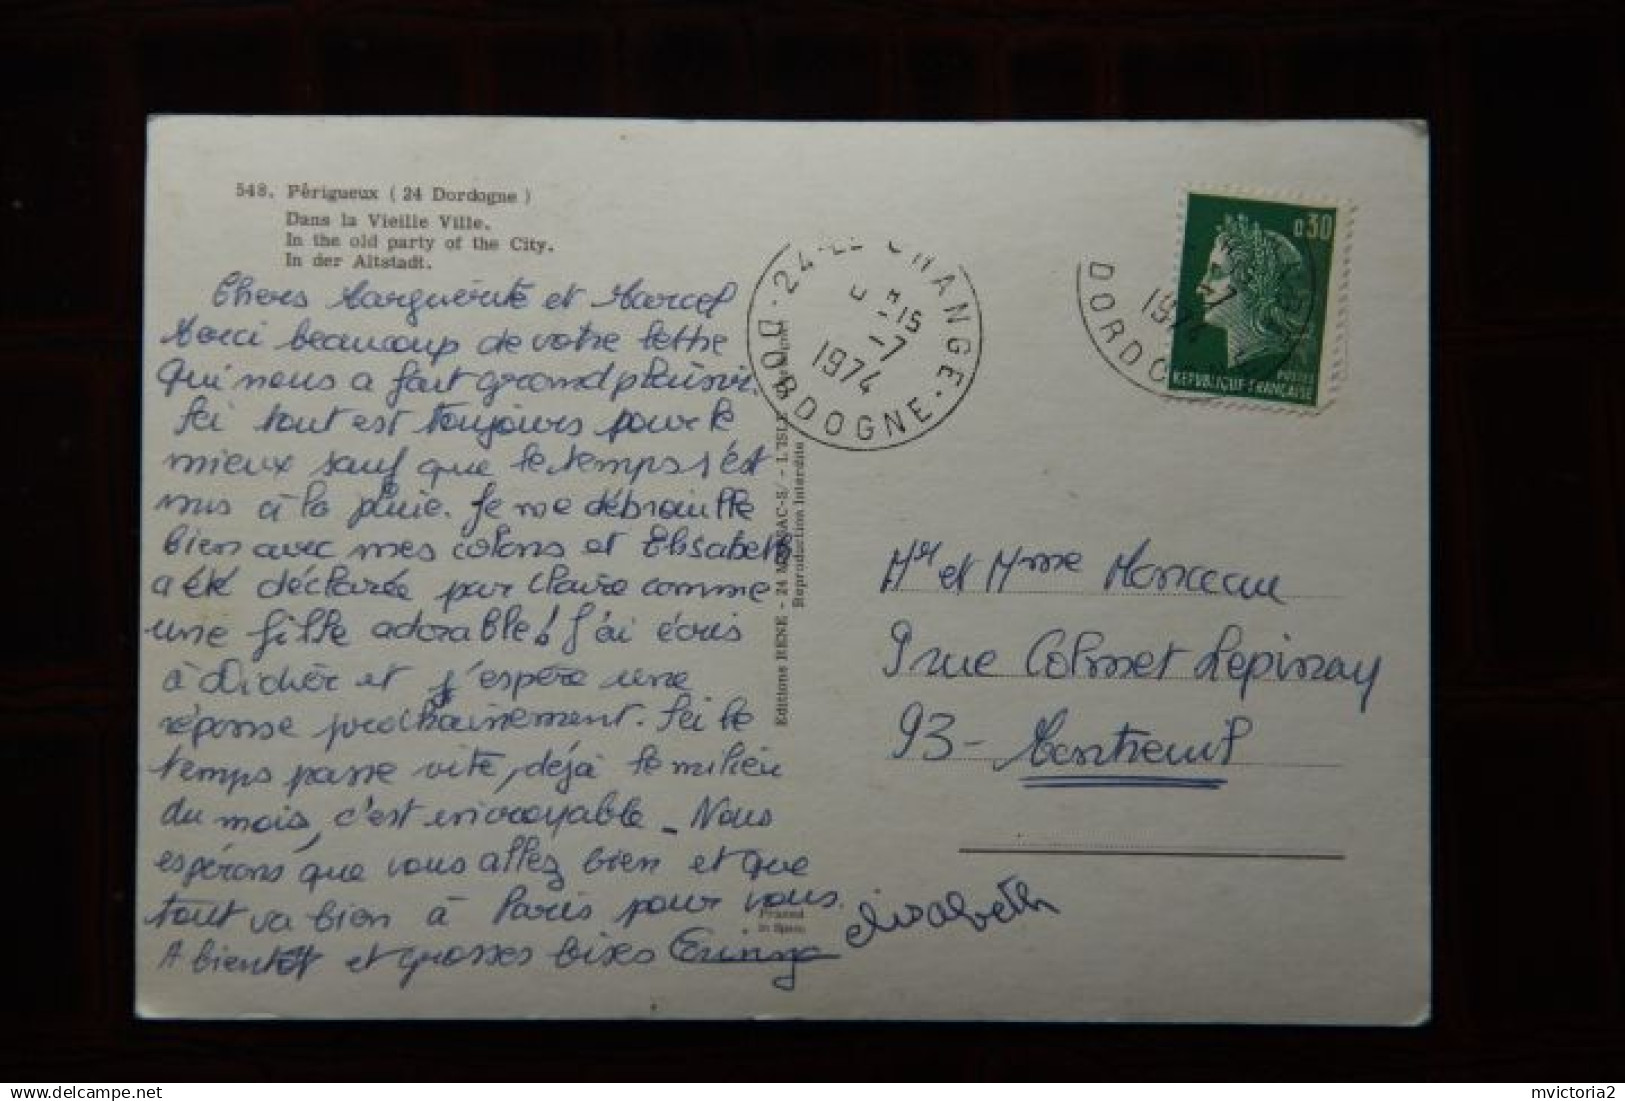 548. Périgueux ( 24 Dordogne )
Dans la Vieille Ville.
In the old party of the City.
In der Altstadt.
Chers Marguerite et Marcel
Merci beaucoup de votre lettre
Qui nous a fait grand plaisir.
Ici tout est toujours pour le
mieux sauf que le temps s'est
mis à la pluie. Je me débrouille
bien avec mes colons et Elisabeth
a été déclarée par Claire comme
une fille adorable! J'ai écris
à Didier et j'espère une
réponse prochainement. Ici le
temps passe vite, déjà le milieu
du mois, c'est incroyable _ Nous
espérons que vous allez bien et que
tout va bien à Paris pour vous.
A bientôt et grosses bises
elisabeth
Editions RENE - 24 - L'ISLE
Reproduction Interdite
Printed
in Spain
24 - LE CHANGE
15 - 7
1974
DORDOGNE
0,30
POSTES
REPUBLIQUE FRANÇAISE
1974
DORDO
Mr et Mme Monceau
9 rue Colmet Lepinay
93 - Montreuil
mvictoria2